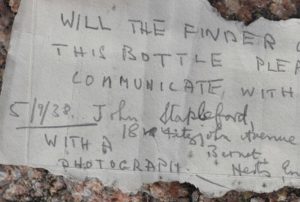 WILL THE FINDER
THIS BOTTLE PLE
COMMUNICATE WITH
5/9/38... John Stapleford,
18 Fitzjohn Avenue
WITH A Barnet.
PHOTOGRAPH. Herts